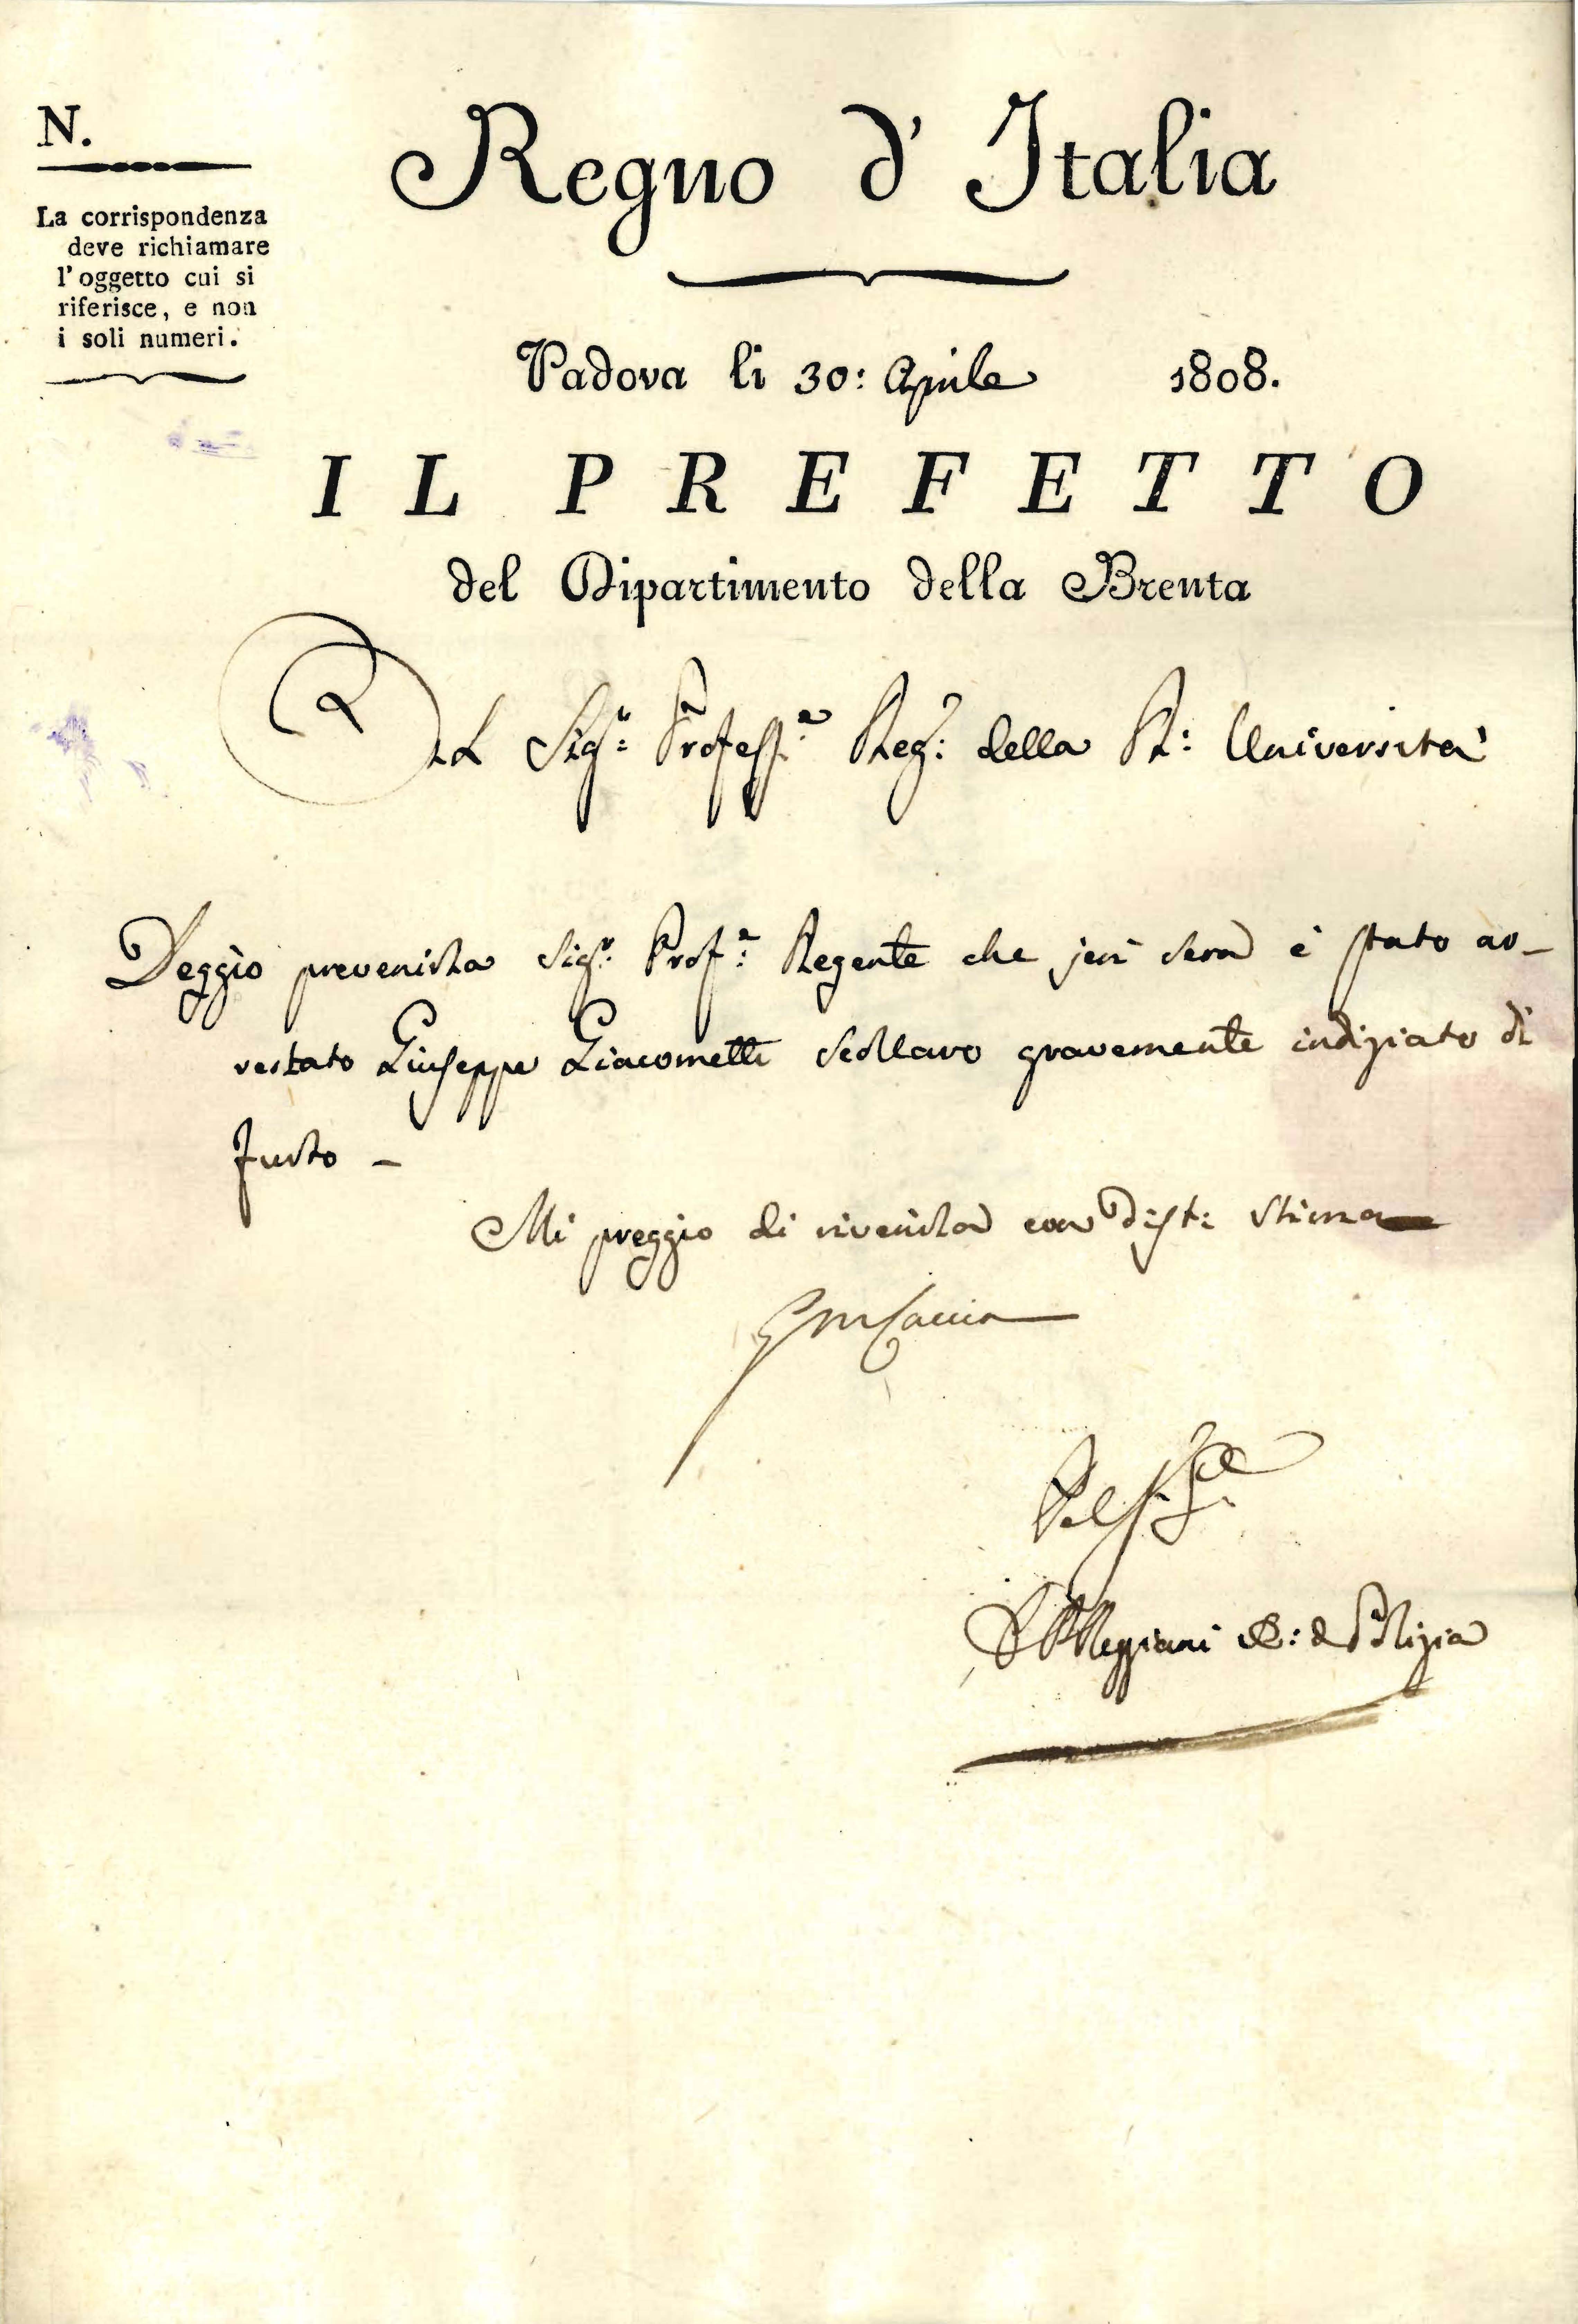 N.
La corrispondenza
deve richiamare
l'oggetto cui si
riferisce, e non
i soli numeri.
Regno d' Italia
Padova li 30: Aprile 1808.
IL PREFETTO
del Dipartimento della Brenta
Al Sigr: Profess.e Reg: della R: Università
Deggio prevenirla Sigr: Profe: Regente che jeri sera è stato ar-
restato Giuseppe Giacometti Scollaro gravemente indiziato di
furto -
Mi preggio di riverirla con dist: stima
Caccia
Pel
Reggiani di Polizia